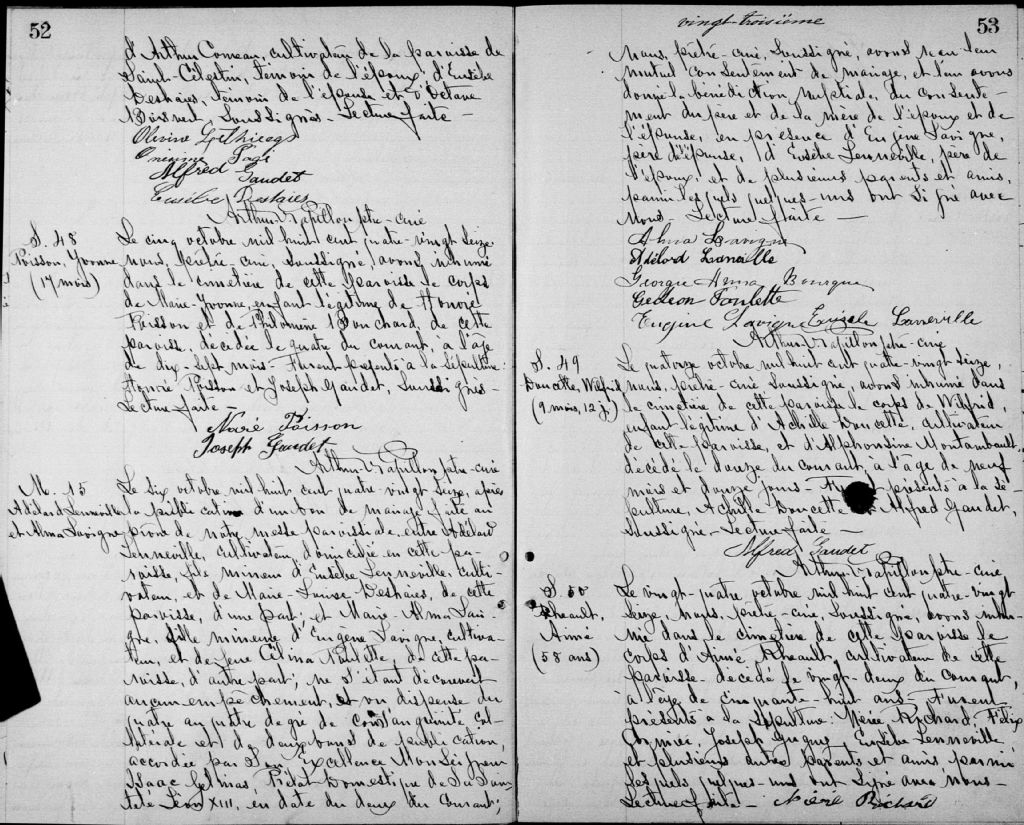 52
d'Arthur Comeau, cultivateur de la paroisse de
Saint-Célestin, témoin de l'époux, d'Eusèbe
Deshaies, témoin de l'épouse et d'Octave
Soussignés - Lecture faite -
Alfred Gaudet
Eusèbe Deshaies
Arthur Papillon, ptre-curé
S. 48
Poisson, Yvonne
(17 mois)
Le cinq octobre mil huit cent quatre-vingt seize
nous, prêtre-curé, soussigné, avons inhumé
dans le cimetière de cette paroisse le corps
de Marie-Yvonne, enfant légitime de Honoré
Poisson et de Philomène Bouchard, de cette
paroisse, décédée le quatre du courant, à l'âge
de dix-sept mois - Furent présents à la sépulture:
Honoré Poisson et Joseph Gaudet, soussignés -
Lecture faite -
Noré Poisson
Joseph Gaudet
Arthur Papillon, ptre-curé
M. 15
Adélard Lenneville
et Alma Lavigne
Le six octobre mil huit cent quatre-vingt seize, après
la publication d'un ban de mariage faite au
prône de notre messe paroissiale, entre Adélard
Lenneville, cultivateur, domicilié en cette pa-
roisse, fils mineur d'Eusèbe Lenneville, culti-
vateur, et de Marie-Louise Deshaies, de cette
paroisse, d'une part; et Marie-Alma Lavi-
gne, fille mineure d'Eugène Lavigne, cultiva-
teur, et de feue Célina Houlette, de cette pa-
roisse, d'autre part; ne s'étant découvert
aucun empêchement, et vu dispense du
quatre au quatre degré de consanguinité col-
latérale et de deux bans de publication,
accordée par Son Excellence Monseigneur
Isaac Gélinas, Prélat Domestique de Sa Sain-
teté Léon XIII, en date du deux du courant;
vingt-troisième
53
Nous, prêtre-curé, soussigné, avons reçu leur
mutuel consentement de mariage, et leur avons
donné la bénédiction nuptiale, du consente-
ment du père et de la mère de l'époux et de
l'épouse, en présence d'Eugène Lavigne,
père de l'épouse, d'Eusèbe Lenneville, père de
l'époux, et de plusieurs parents et amis,
parmi lesquels quelques-uns ont signé avec
nous - Lecture faite -
Alma Lavigne
Adélord Lanneville
Georgie Anna Bourque
Gedeon Poulette
Eugène Lavigne Euzèbe Lanneville
Arthur Papillon, ptre-curé
S. 49
Doucette, Wilfrid
(9 mois, 12 j.)
Le quatorze octobre mil huit cent quatre-vingt seize,
nous, prêtre-curé soussigné, avons inhumé dans
le cimetière de cette paroisse le corps de Wilfrid,
enfant légitime d'Achille Doucette, cultivateur
de cette paroisse, et d'Alphonsine Montambault,
décédé le douze du courant, à l'âge de neuf
mois et douze jours - présents à la sé-
pulture, Achille Doucette Alfred Gaudet,
soussigné - Lecture faite -
Alfred Gaudet
Arthur Papillon, ptre-curé
S. 50
Rheault,
Aimé
(58 ans)
Le vingt-quatre octobre mil huit cent quatre-vingt
seize, nous, prêtre-curé, soussigné, avons inhu-
mé dans le cimetière de cette paroisse le
corps d'Aimé Rheault, cultivateur de cette
paroisse - décédé le vingt-deux du courant,
à l'âge de cinquante-huit ans. Furent
présents à la sépulture: Nérée Richard, Félix
Cormier, Joseph Eusèbe Lenneville
et plusieurs autres parents et amis parmi
lesquels quelques-uns ont signé avec nous -
Lecture faite - Nérée Richard